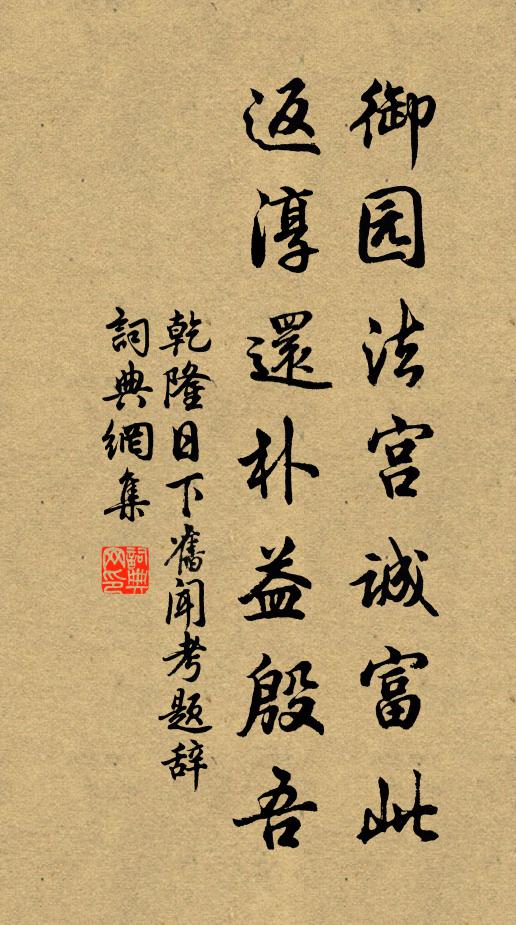 御园法宫诚富此
返淳還朴益殷吾
乾隆日下舊闻考题辞
詞典網集
詞典网印